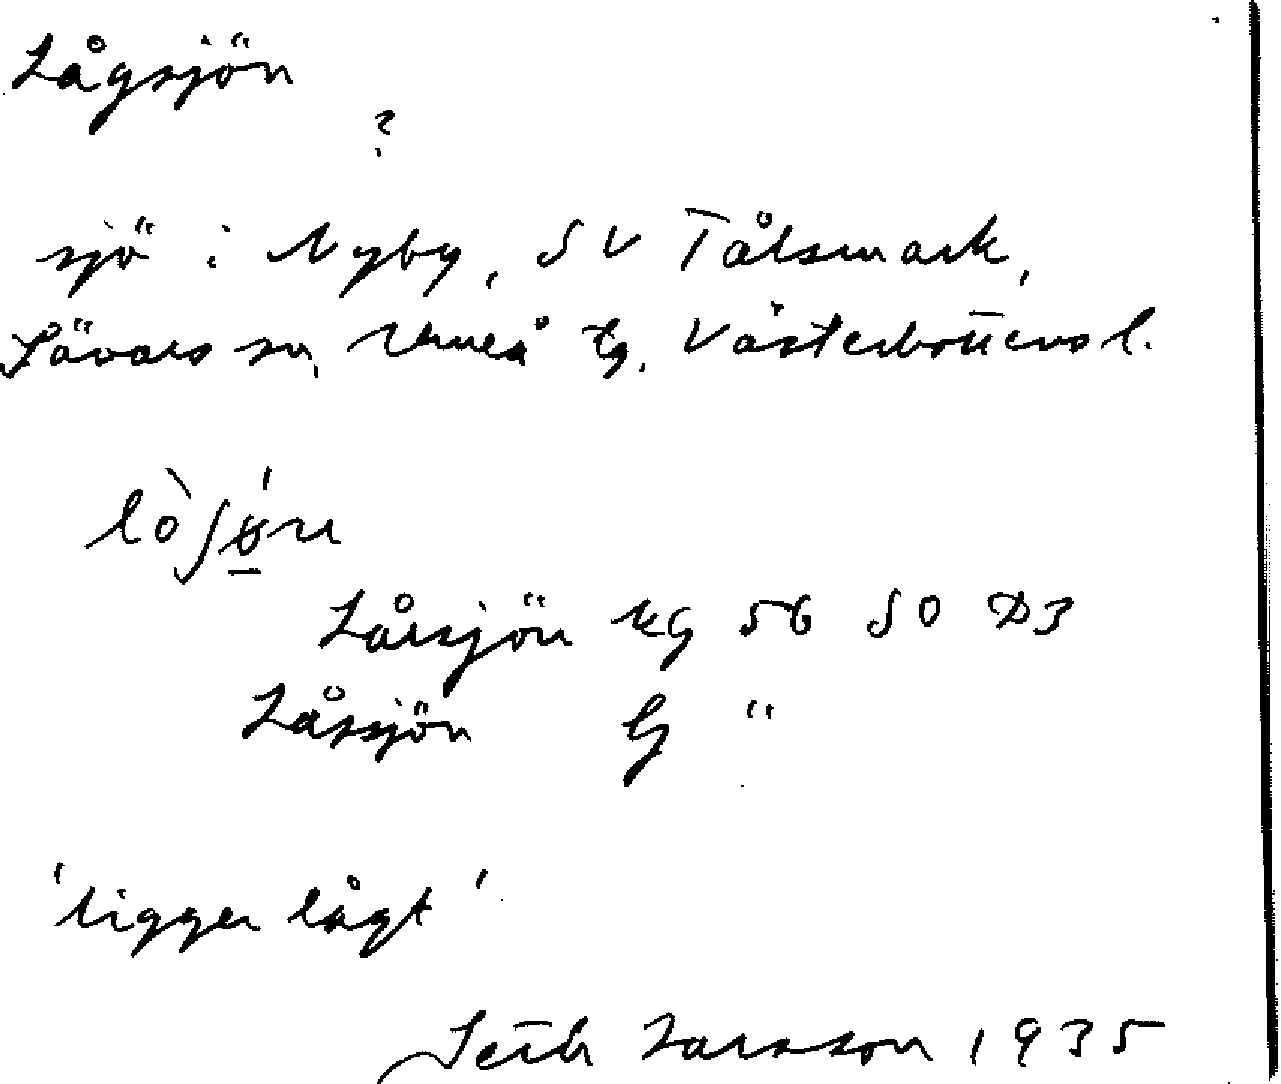 Lågsjön
?
sjö i Nyby, SV Tålsmark,
Sävars sn, Umeå tg. Västerbottens l.
lò∫ө́n
Lårsjön kg 56 SO D3
Låssjön G "
'ligger lågt'
Seth Larsson 1935